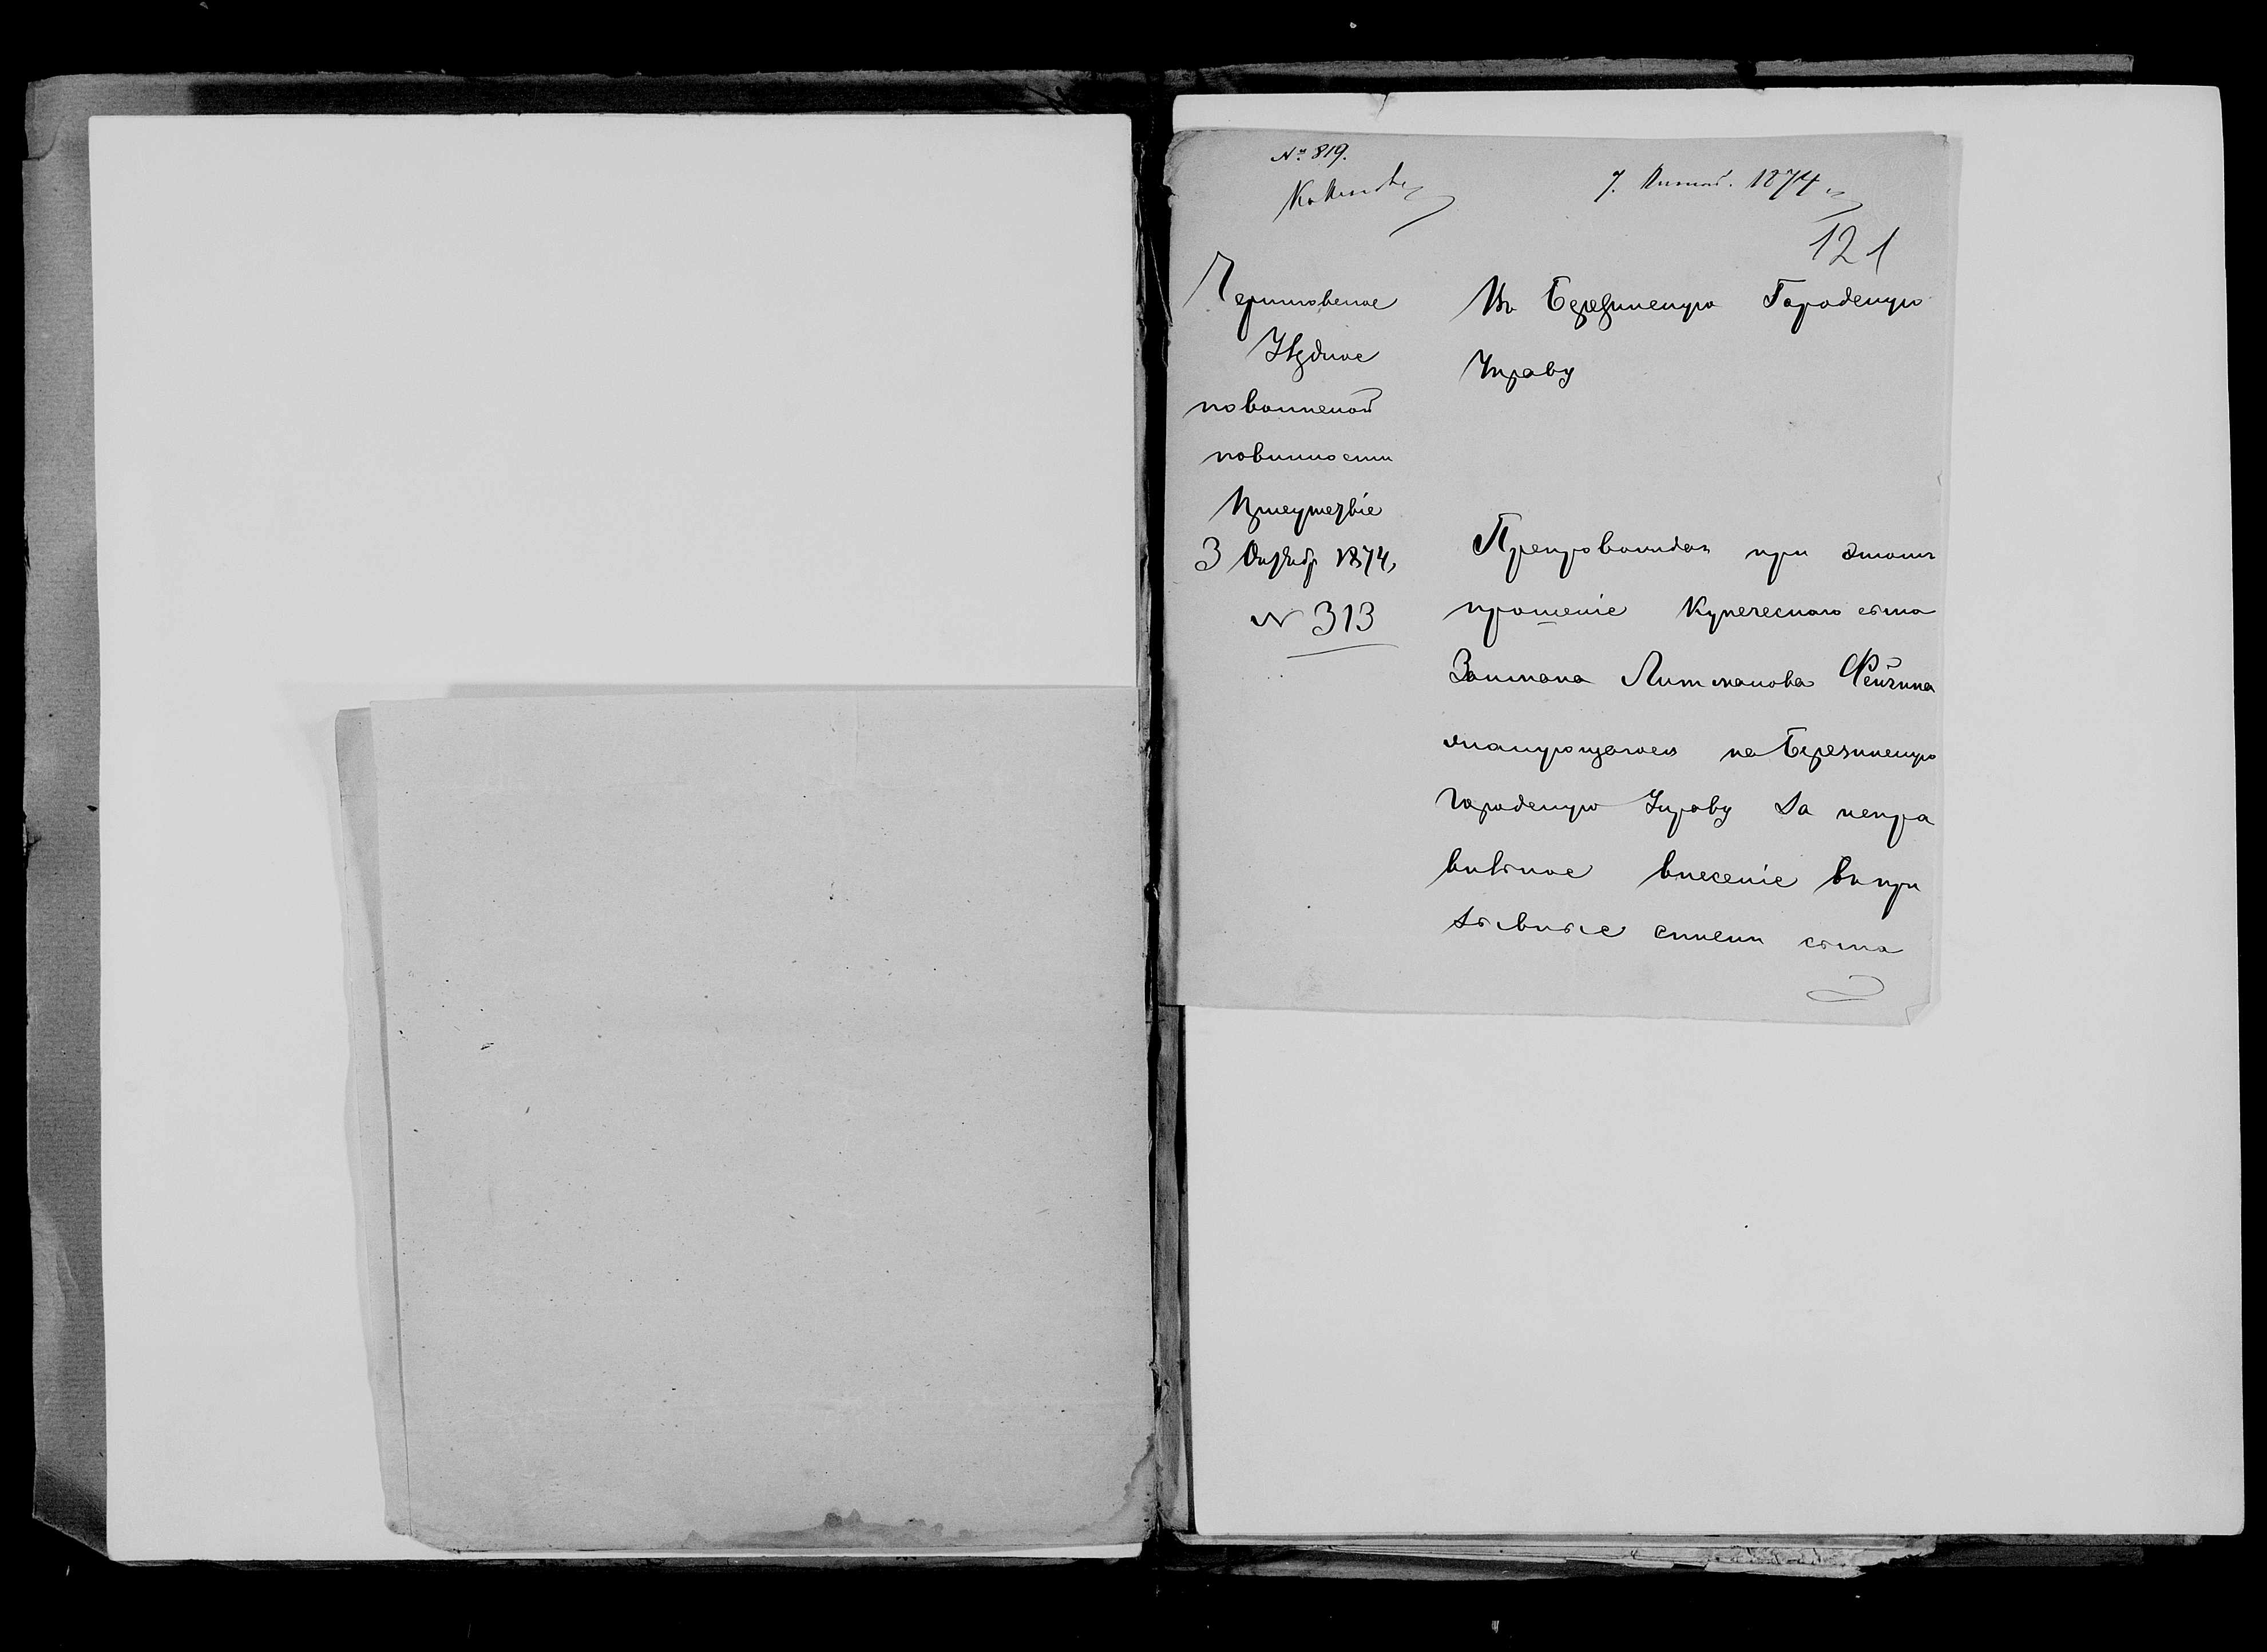 № 819.
7. 1874
121
Черниговское
Уѣздное
по воинской
повинности
Присутствіе
3 Октябр 1874,
№ 313
Въ Березинскую Городскую
Управу
Препровождая при этомъ
прошеніе Купеческаго сына
Залмана Литманова Фейгина
жалующагося на Березинскую
городскую Управу За непра
вильное внесеніе въ при
зывные списки сына